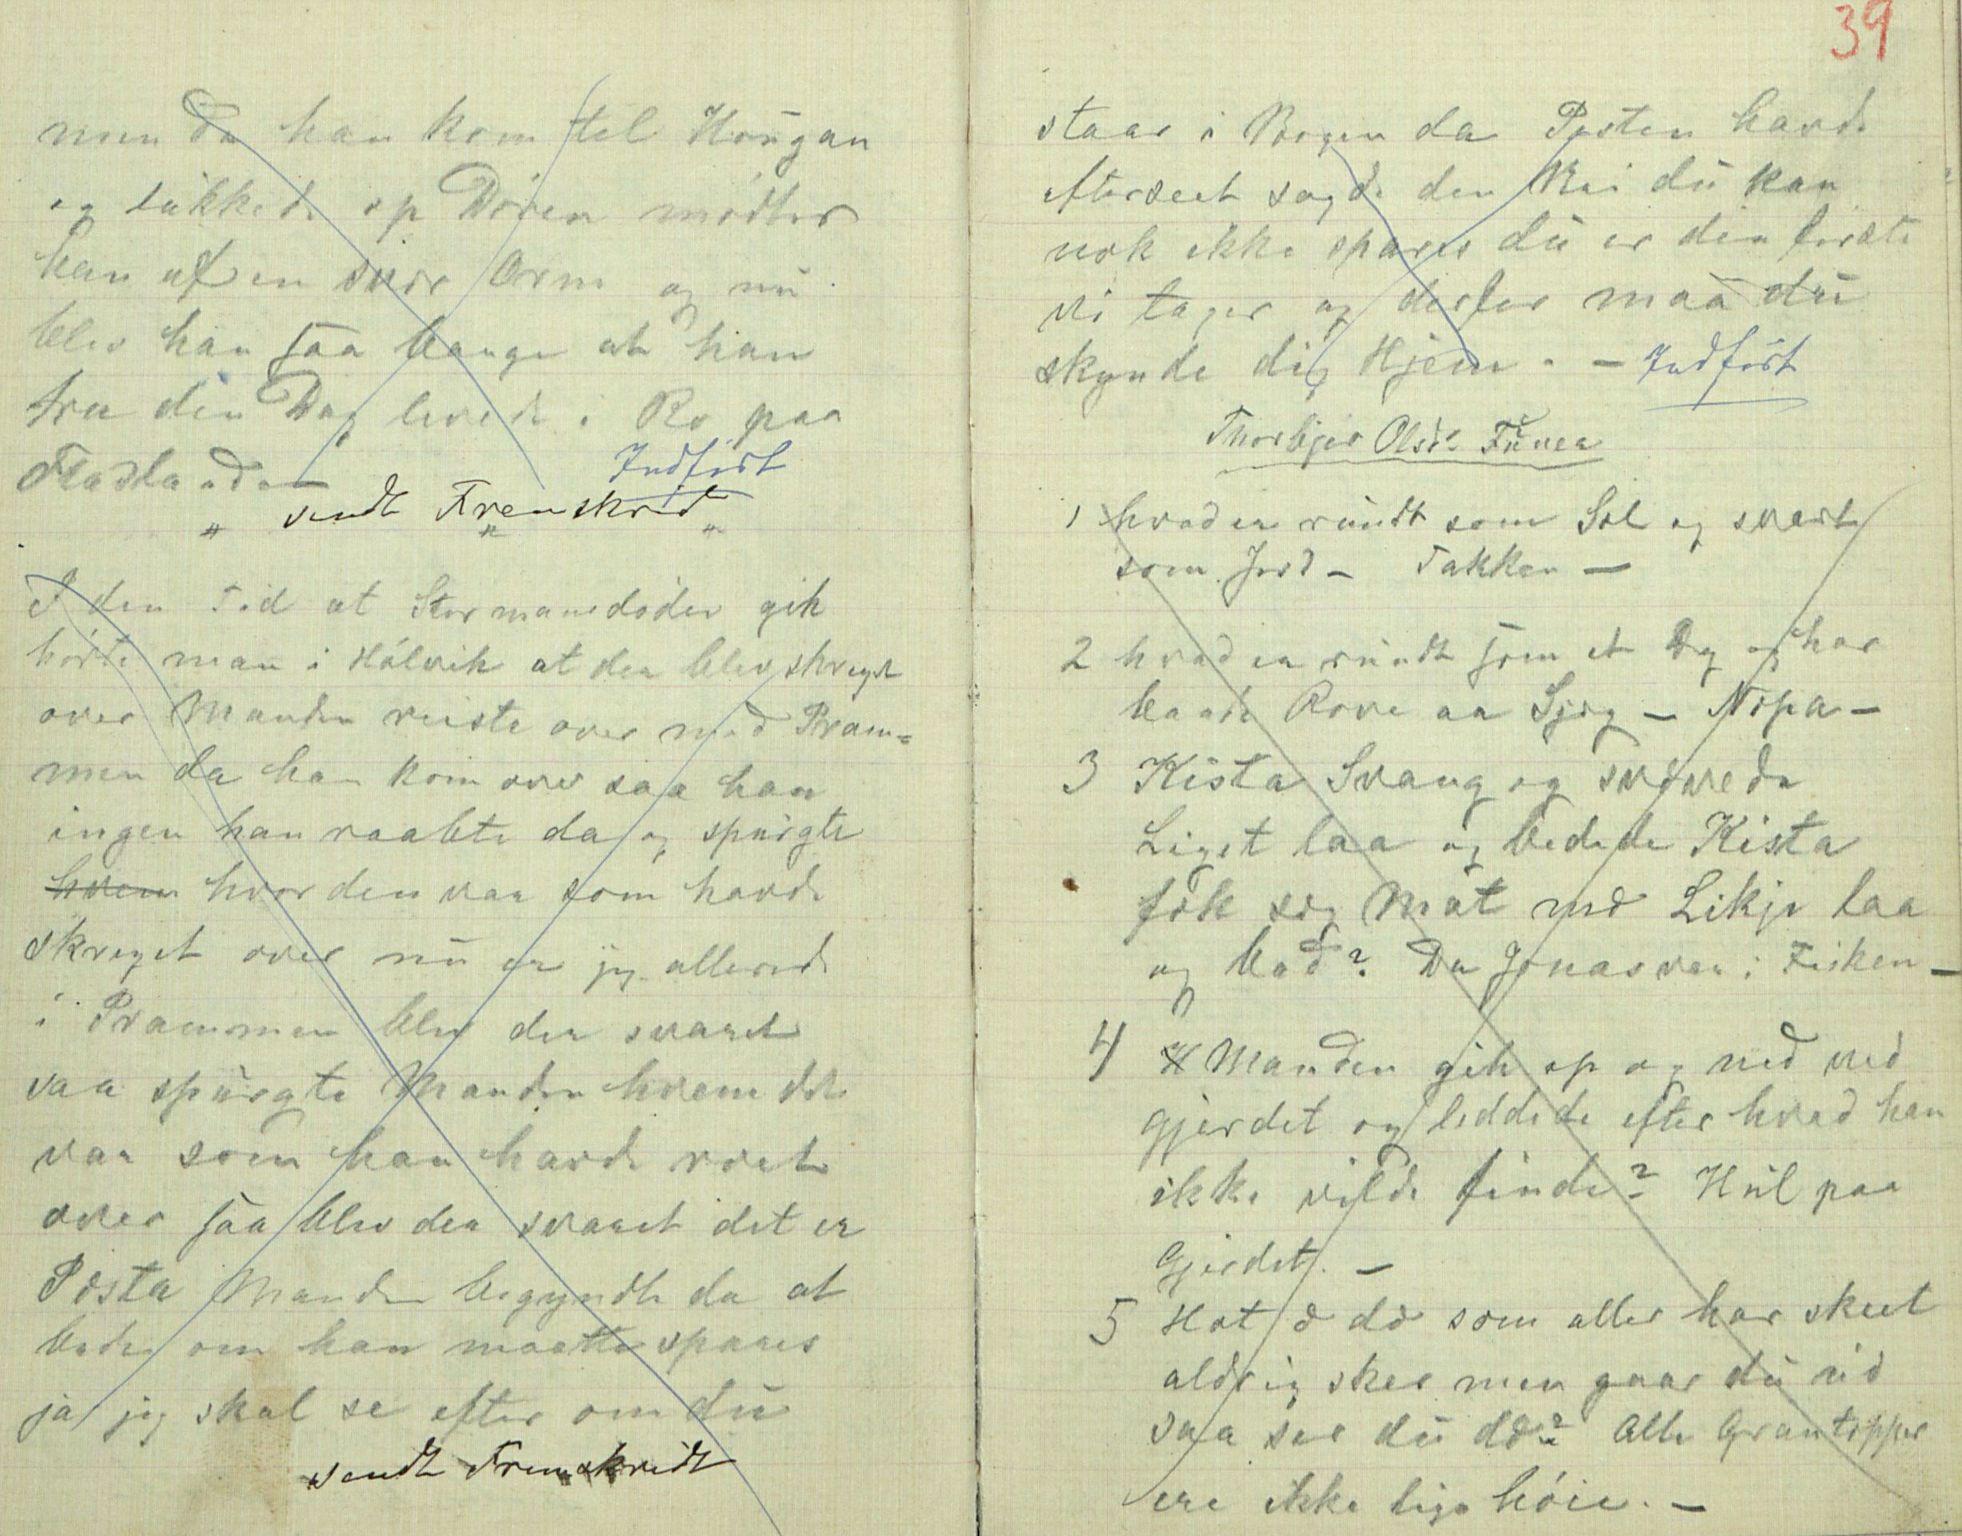 men da han kom til Haugan
og lukkede op Døren mødter
han af en svær Orm og nu
blev han saa bange at han
fra den Dag levede i Ro paa
Fladland
Indført
sendt Fremskridt
I den Tid at Stormanedøden gik
hørte man i Hálvik at der blev skreget
over Manden reiste over med Pram=
men da han kom over saa han
ingen han raabte da og spurgte
hvem hvor den var som havde
skreget over nu er jeg allerede
i Prammen blev der svaret
saa spurgte Manden hvem det
var som han havde roet
over saa blev der svaret det er
Pesta Manden begyndte da at
bede om han maatte spares
ja jeg skal se efter om du
sendt Fremskridt
39
staar i Bogen da Pesten havde
efterseet sagde den Nei du kan
nok ikke spares du er den første
vi tager og derfor maa du
skynde dig Hjem. - Indført
Thorbjør Olsds
1 hvad er rundt som Sol og svart
som Jord - Takken -
2 hvad er rundt som et Eg og har
baade Rove aa Sjeg - Nepa -
3 Kista Svang og svevede
Liget laa og bedede Kista
fek seg Mat med Likje laa
og bad? Da Jonas var i Fisken -
4 Manden gik op og ned ved
gjerdet og leddede efter hvad han
ikke vilde finde? Hul paa
Gjerdet. -
5 Hot æ dæ som aller har skeet
aldrig sker men gaar du ud
saa ser du dæ? Alle Grantopper
ere ikke lige høie. -